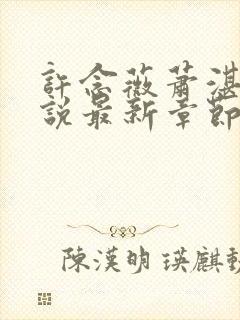 許念薇蕭湛
說最新章節
陳漢明 瑛麒